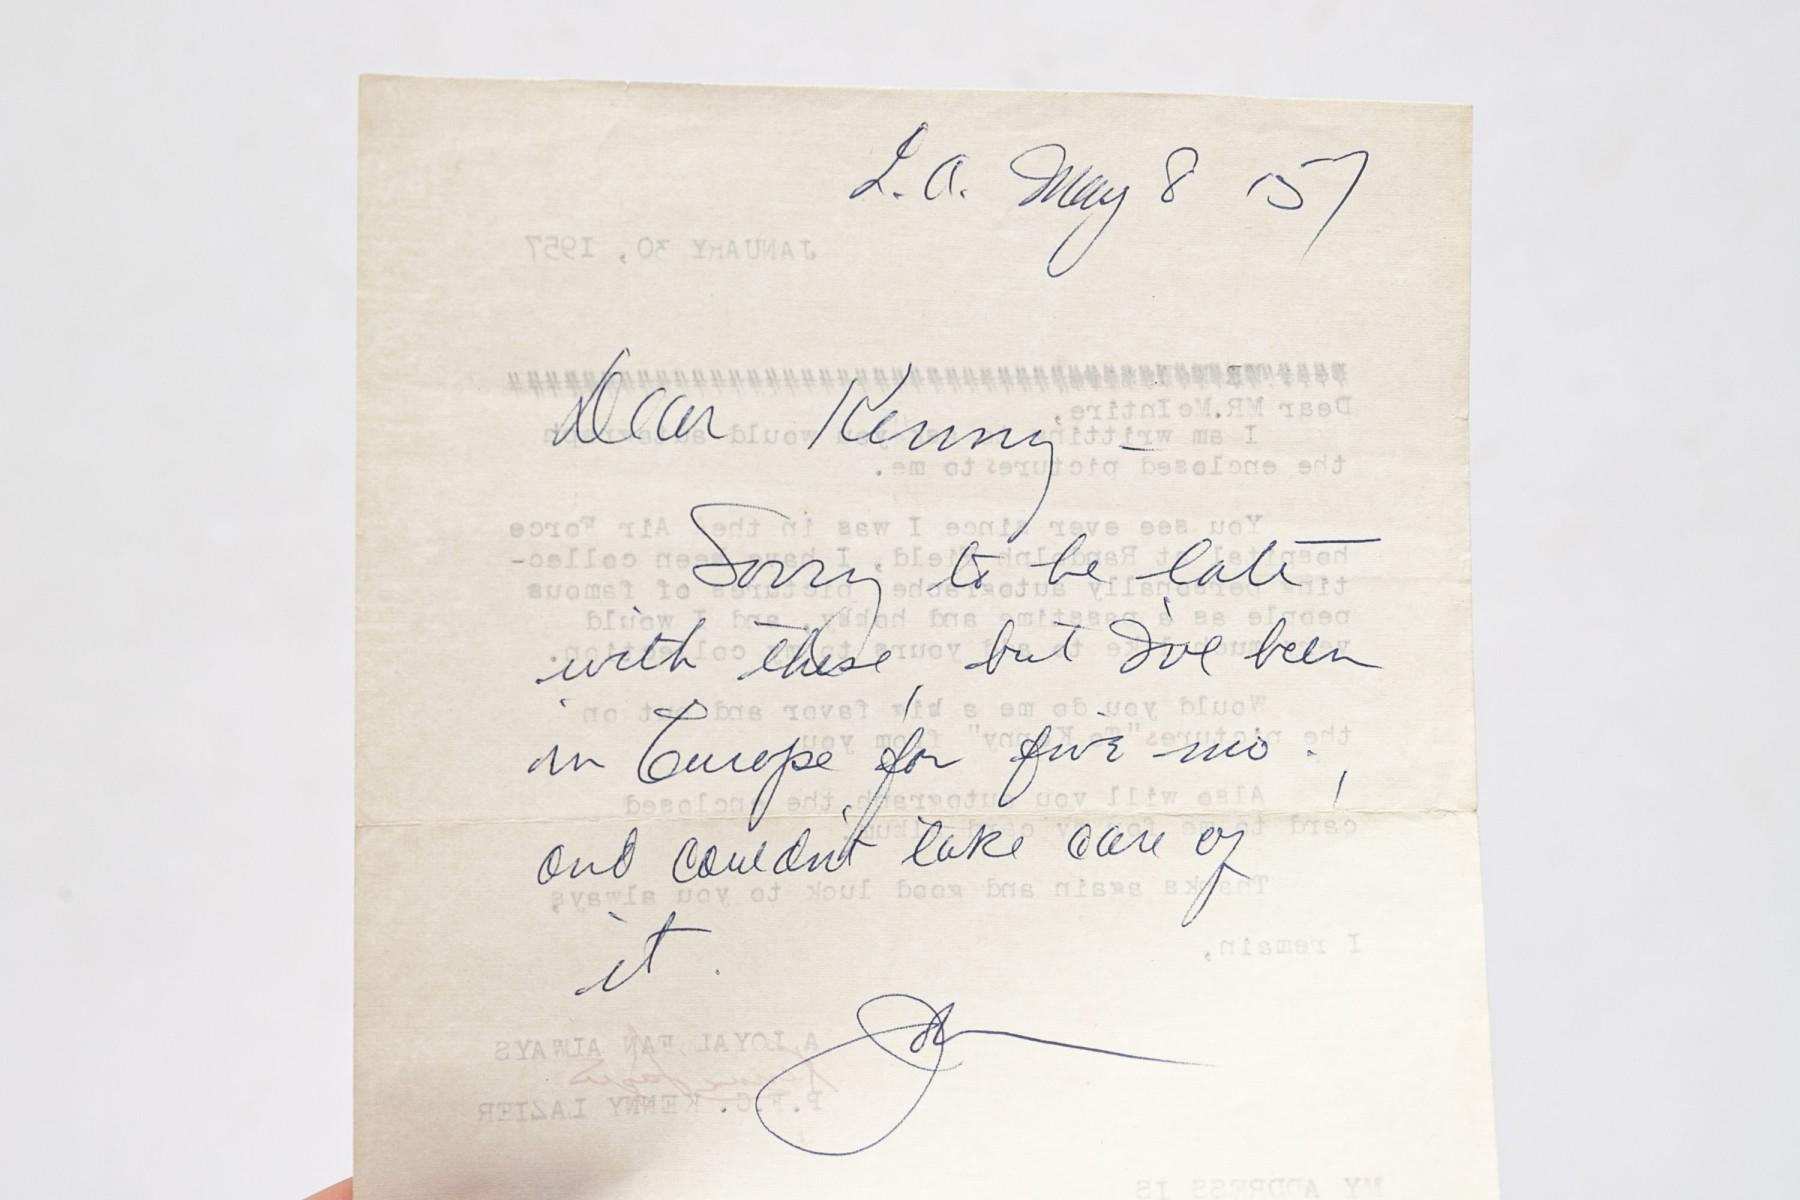 L.A. May 8 '57
Dear Kenny –
Sorry to be late
with these, but I've been
in Europe for five mo.,
and couldn't take care of
it.
JANUARY 30, 1957
Dear MR. McIntire,
I am writting you would autograph
the enclosed pictures to me.
You see ever since I was in the Air Force
hospital at Randolph Field, I have been collec-
ting personally autographed pictures of famous
people as a passtime and hobby, and I would
very much like to add yours to my collection.
Would you do me a big favor and put on
the pictures "To Kenny" from you
Also will you autograph the enclosed
card to me for my card album.
Thanks again and good luck to you always,
I remain,
A LOYAL FAN ALWAYS
P.F.C. KENNY LAZIER
MY ADDRESS IS